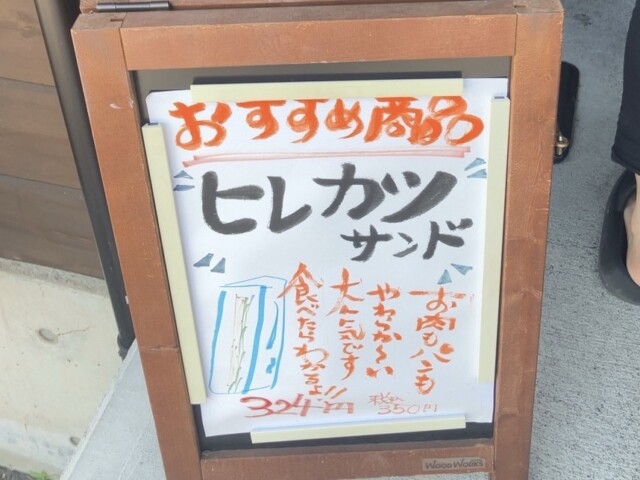 おすすめ商品
ヒレカツ
サンド
お肉もパンも
やわらか〜い
大人気です
食べたらわかるよ!!
324円
税込
350円
WOOD WORKS